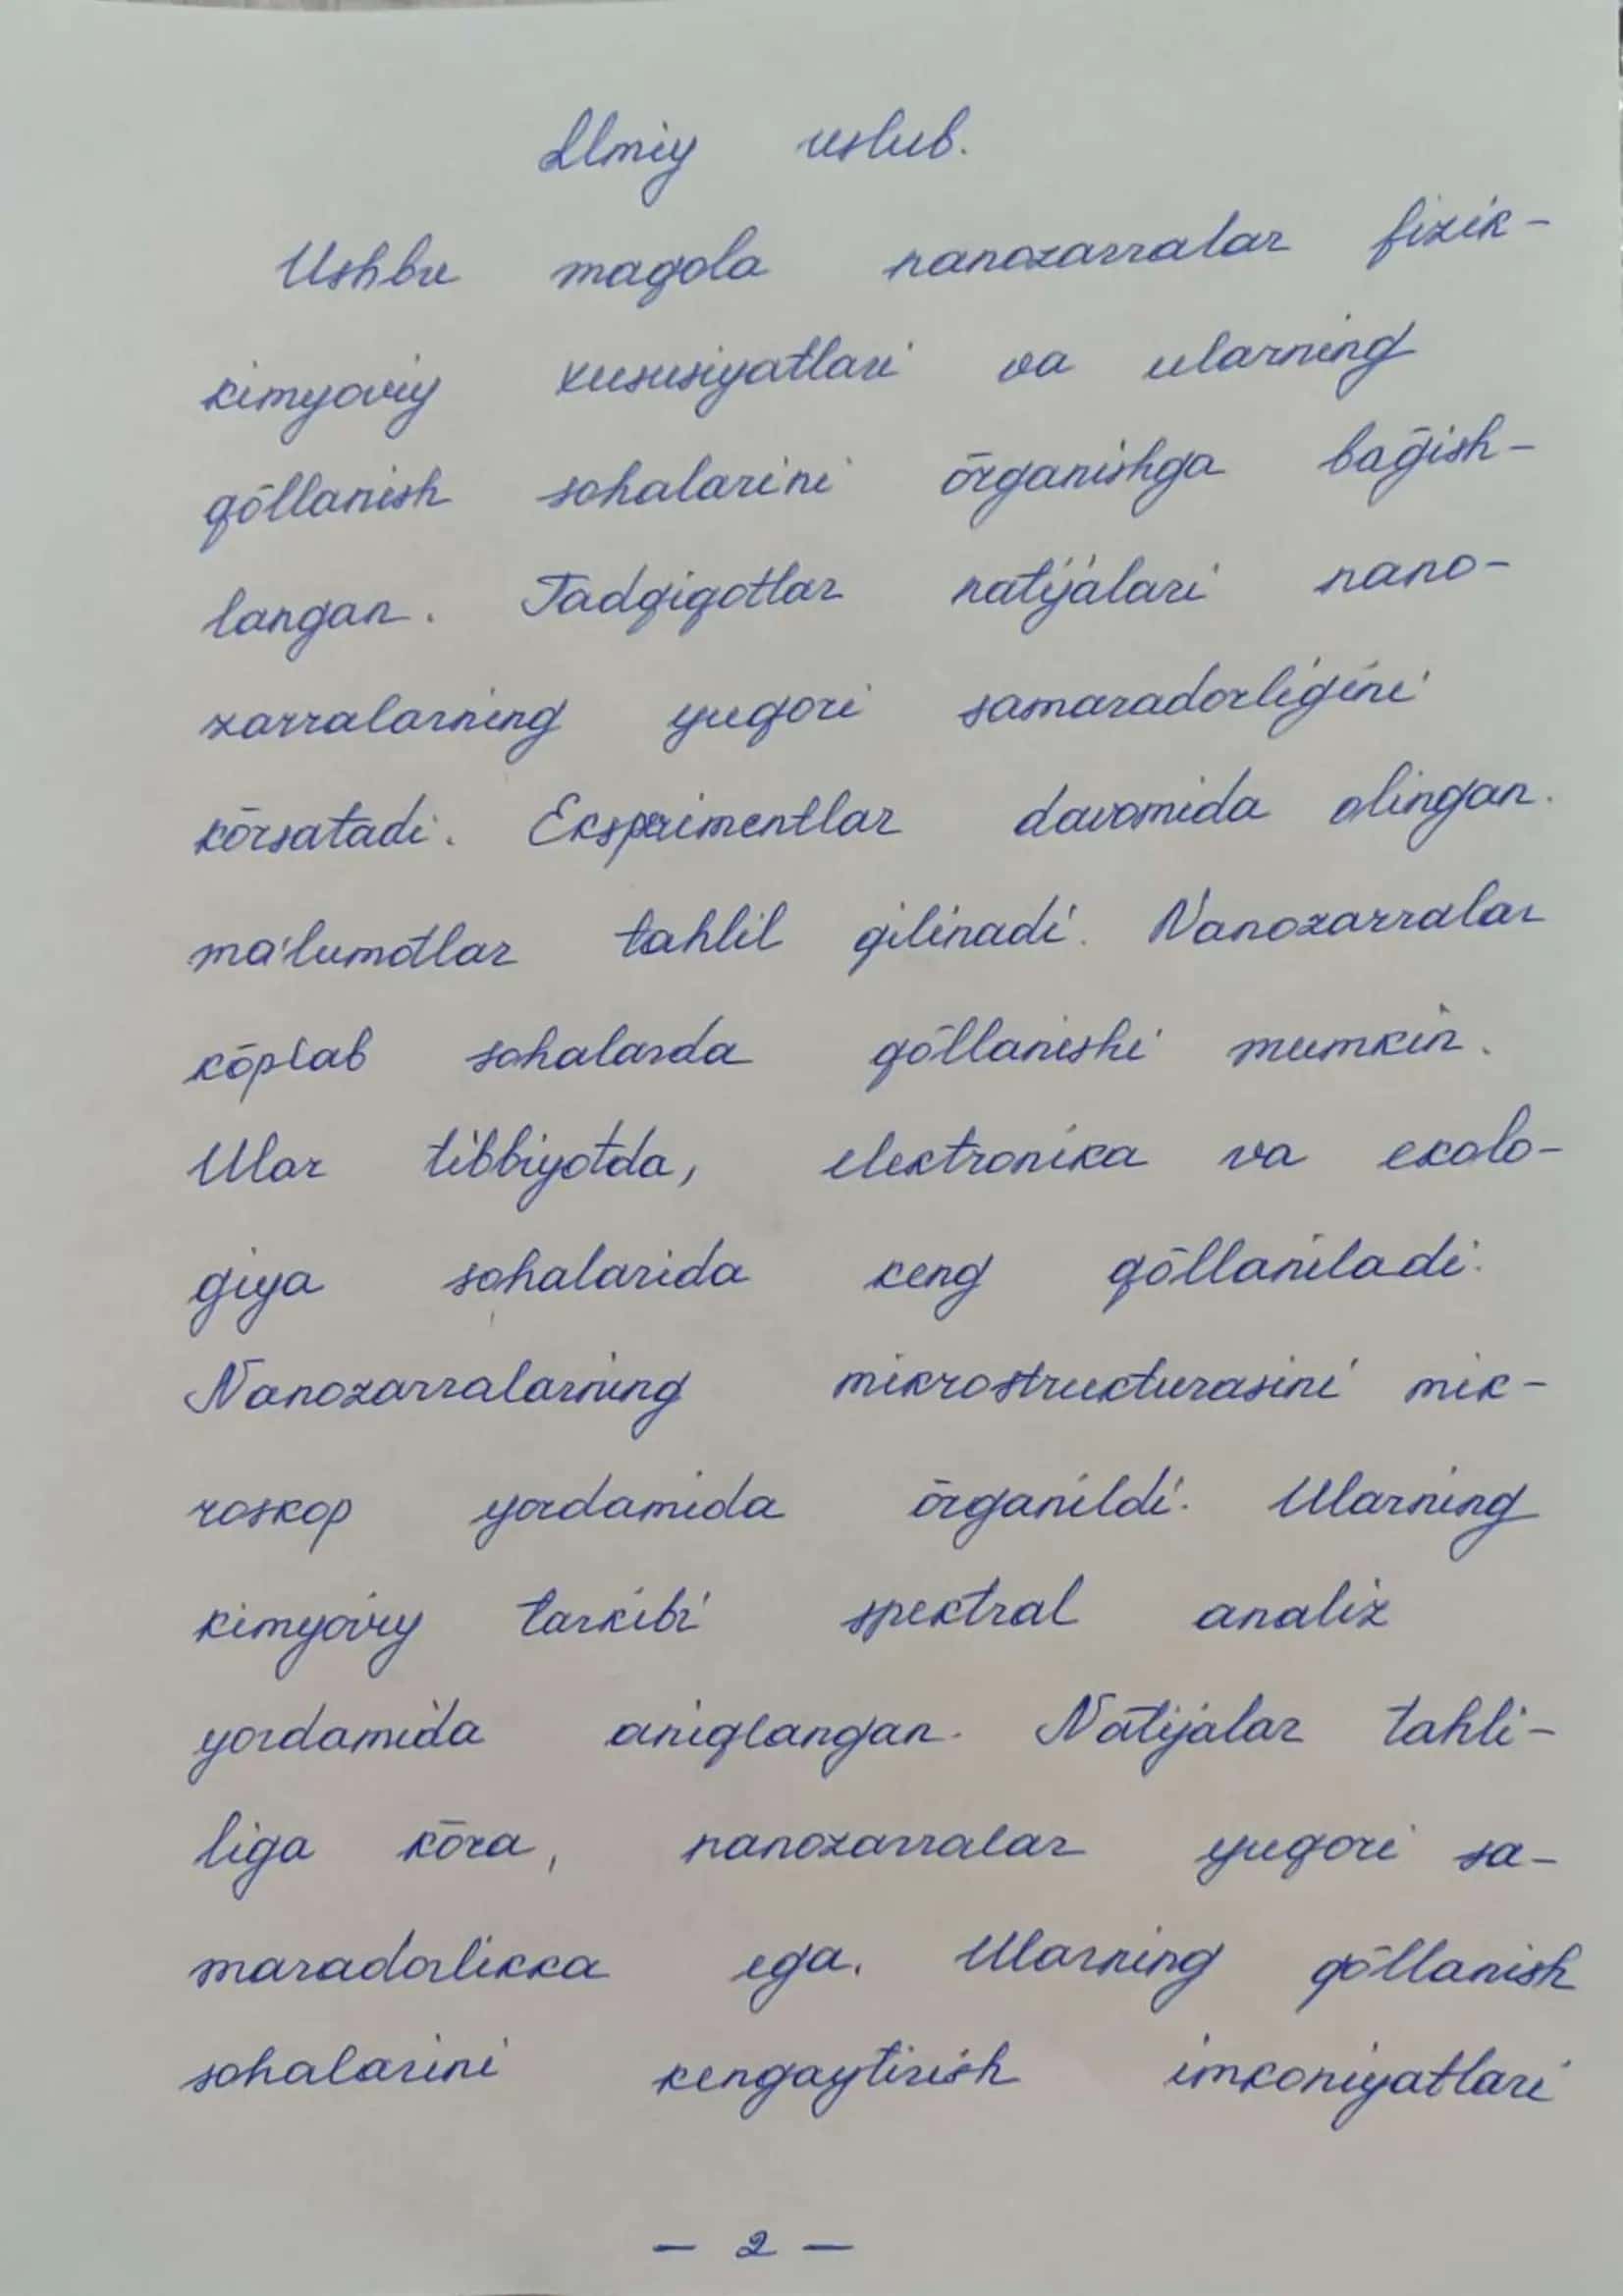 Ilmiy uslub.
Ushbu maqola nanozarralar fizik-
kimyoviy xususiyatlari va ularning
qōllanish sohalarini ōrganishga baḡish-
langan. Tadqiqotlar natijalari nano-
zarralarning yuqori samaradorligini
kōrsatadi. Eksperimentlar davomida olingan
ma'lumotlar tahlil qilinadi. Nanozarralar
kōplab sohalarda qōllanishi mumkin.
Ular tibbiyotda, elektronika va ekolo-
giya sohalarida keng qōllaniladi.
Nanozarralarning mikrostrukturasini mik-
roskop yordamida ōrganildi. Ularning
kimyoviy tarkibi spektral analiz
yordamida aniqlangan. Natijalar tahli-
liga kōra, nanozarralar yuqori sa-
maradorlikka ega. Ularning qōllanish
sohalarini kengaytirish imkoniyatlari
- 2 -